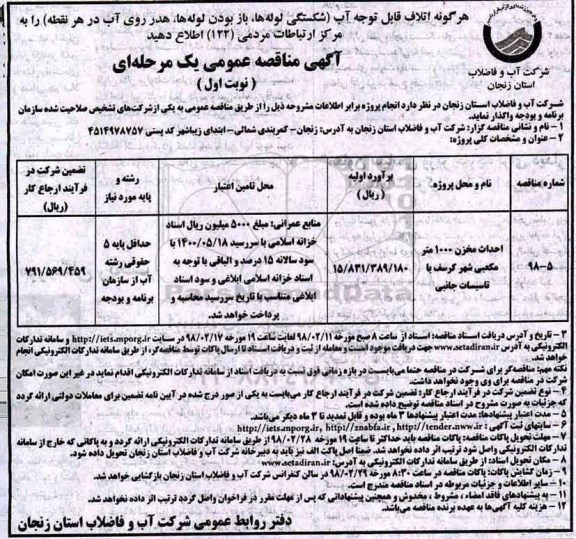 هرگونه اتلاف قابل توجه آب (شکستگی لوله‌ها، باز بودن لوله‌ها، هدر روی آب در هر نقطه) را به
مرکز ارتباطات مردمی (۱۲۲) اطلاع دهید
آگهی مناقصه عمومی یک مرحله‌ای
( نوبت اول )
شرکت آب و فاضلاب
استان زنجان
شرکت آب و فاضلاب استان زنجان در نظر دارد انجام پروژه برابر اطلاعات مشروحه ذیل را از طریق مناقصه عمومی به یکی از شرکت‌های تشخیص صلاحیت شده سازمان
برنامه و بودجه واگذار نماید.
۱- نام و نشانی مناقصه گزار: شرکت آب و فاضلاب استان زنجان به آدرس: زنجان- کمربندی شمالی- ابتدای زیباشهر کد پستی ۴۵۱۴۹۷۸۷۵۷
۲- عنوان و مشخصات کلی پروژه:
شماره مناقصه
نام و محل پروژه
برآورد اولیه (ریال)
محل تامین اعتبار
رشته و پایه مورد نیاز
تضمین شرکت در فرآیند ارجاع کار (ریال)
۹۸-۵
احداث مخزن ۱۰۰۰ متر
مکعبی شهر کرسف با
تاسیسات جانبی
۱۵/۸۳۱/۳۸۹/۱۸۰
منابع عمرانی: مبلغ ۵۰۰۰ میلیون ریال اسناد
خزانه اسلامی با سررسید ۱۴۰۰/۰۵/۱۸ با
سود سالانه ۱۵ درصد و الباقی با توجه به
اسناد خزانه اسلامی ابلاغی و سود اسناد
ابلاغی متناسب با تاریخ سررسید محاسبه و
پرداخت خواهد شد.
حداقل پایه ۵
حقوقی رشته
آب از سازمان
برنامه و بودجه
۷۹۱/۵۶۹/۴۵۹
۳- تاریخ و آدرس دریافت اسناد مناقصه: اسناد از ساعت ۸ صبح مورخه ۹۸/۰۲/۱۱ لغایت ساعت ۱۹ مورخه ۹۸/۰۲/۱۷ در سایت http://iets.mporg.ir و سامانه تدارکات
الکترونیکی به آدرس www.setadiran.ir جهت دریافت موجود است و معامله از ثبت و دریافت اسناد تا ارسال پاکات توسط مناقصه‌گر، از طریق سامانه تدارکات الکترونیکی انجام
خواهد شد.
نکته مهم: مناقصه‌گر برای شرکت در مناقصه حتما می‌بایست در بازه زمانی فوق نسبت به دریافت اسناد از سامانه تدارکات الکترونیکی اقدام نماید در غیر این صورت امکان
شرکت در مناقصه برای وی وجود نخواهد داشت.
۴- نوع تضمین شرکت در فرآیند ارجاع کار: تضمین شرکت در فرآیند ارجاع کار می‌بایست به یکی از صور درج شده در آیین نامه تضمین برای معاملات دولتی ارائه گردد
که جزئیات به صورت مشروح در اسناد مناقصه توضیح داده شده است.
۵- مدت اعتبار پیشنهادها: مدت اعتبار پیشنهادها ۳ ماه بوده و قابل تمدید تا ۳ ماه دیگر می‌باشد.
۶- سایتهای ثبت آگهی : http://iets.mporg.ir, http://znabfa.ir , http://tender.nww.ir
۷- مهلت تحویل پاکات مناقصه: پاکات مناقصه باید حداکثر تا ساعت ۱۹ مورخه ۹۸/۰۲/۲۸ از طریق سامانه تدارکات الکترونیکی ارائه گردد و به پاکاتی که خارج از سامانه
تدارکات الکترونیکی واصل شود ترتیب اثر داده نخواهد شد. ضمنا اصل پاکت الف نیز باید به دبیرخانه شرکت آب و فاضلاب استان زنجان تحویل داده شود.
۸- مکان تحویل اسناد: از طریق سامانه تدارکات الکترونیکی به آدرس: www.setadiran.ir
۹- زمان گشایش پاکات: پاکات مناقصه در ساعت ۸:۳۰ مورخ ۹۸/۰۲/۲۹ در سالن کنفرانس شرکت آب و فاضلاب استان زنجان بازگشایی خواهد شد.
۱۰- سایر اطلاعات و جزئیات مربوطه در اسناد مناقصه مندرج است.
۱۱- به پیشنهادهای فاقد امضاء ، مشروط ، مخدوش و همچنین پیشنهاداتی که پس از مهلت مقرر در فراخوان واصل گردد ترتیب اثر داده نخواهد شد.
۱۲- هزینه کلیه آگهی‌ها به عهده برنده مناقصه می‌باشد.
دفتر روابط عمومی شرکت آب و فاضلاب استان زنجان